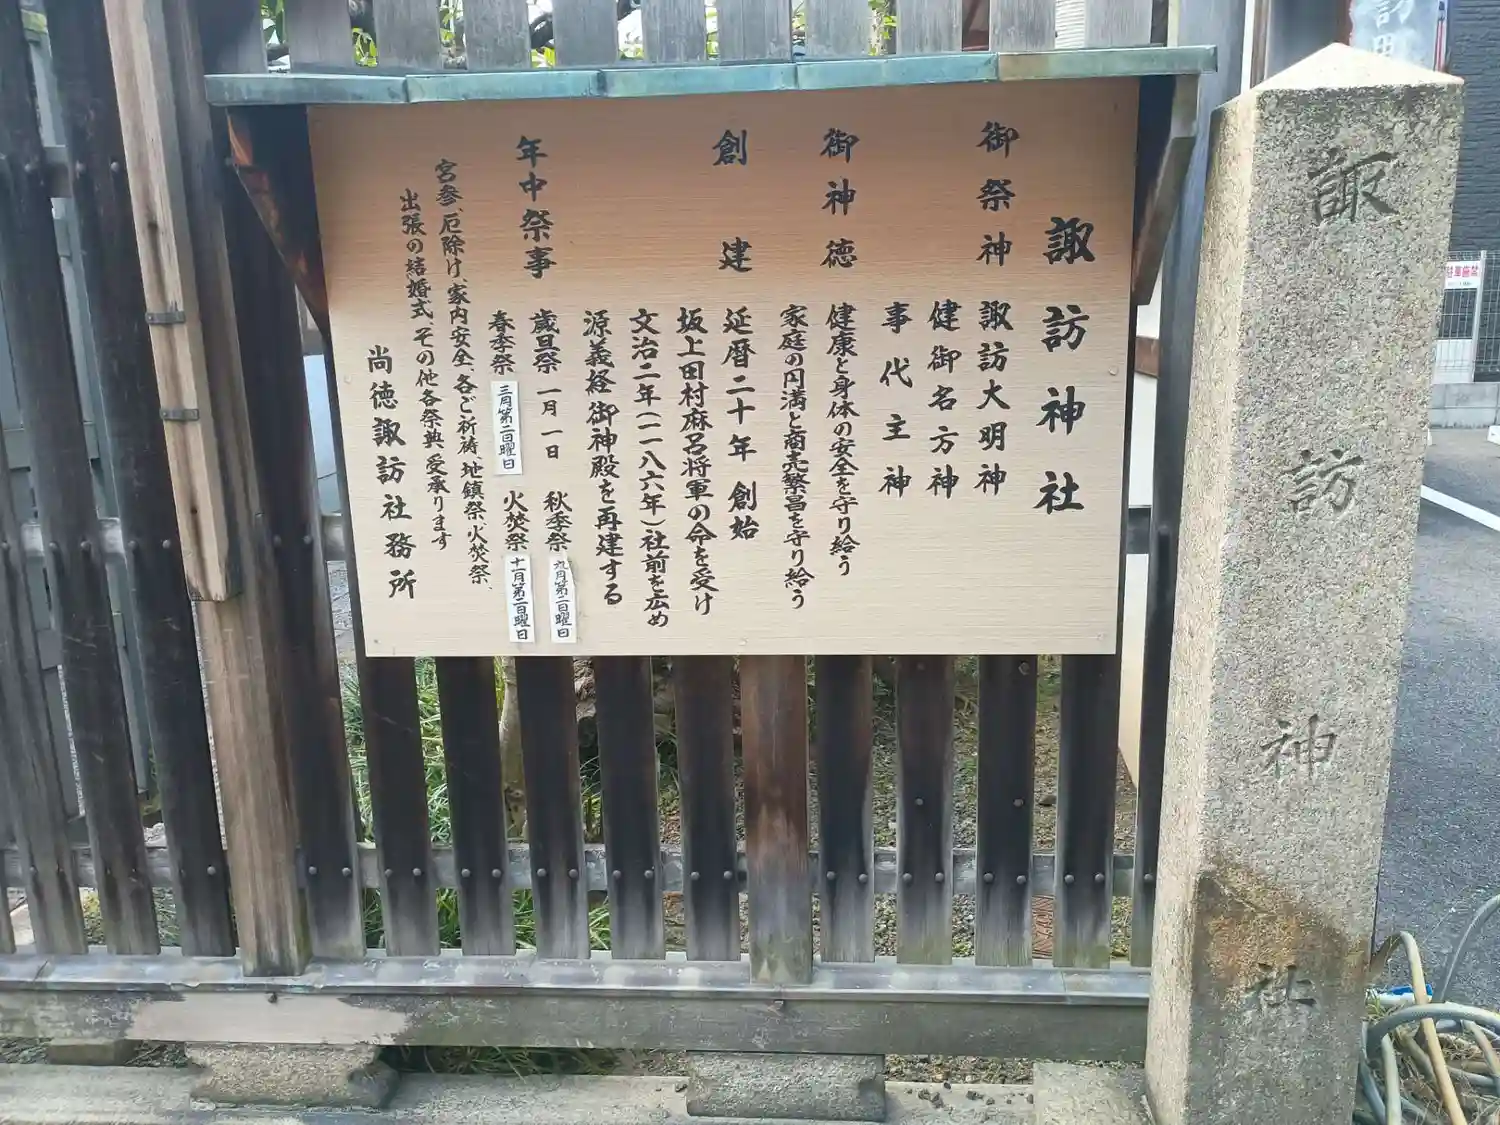 諏訪神社
御祭神
諏訪大明神
健御名方神
事代主神
御神徳
健康と身体の安全を守り給う
家庭の円満と商売繁昌を守り給う
創建
延暦二十年 創始
坂上田村麻呂将軍の命を受け
文治二年(一一八六年)社前を広め
源義経 御神殿を再建する
年中祭事
歳旦祭 一月一日
秋季祭 九月第二日曜日
春季祭 三月第二日曜日
火焚祭 十一月第二日曜日
宮参、厄除け、家内安全、各ご祈祷、地鎮祭、火焚祭、
出張の結婚式、その他各祭典 受承ります
尚徳諏訪社務所
諏訪神社
駐車厳禁